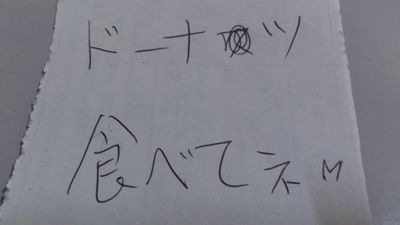 ドーナツ
食べてネ M